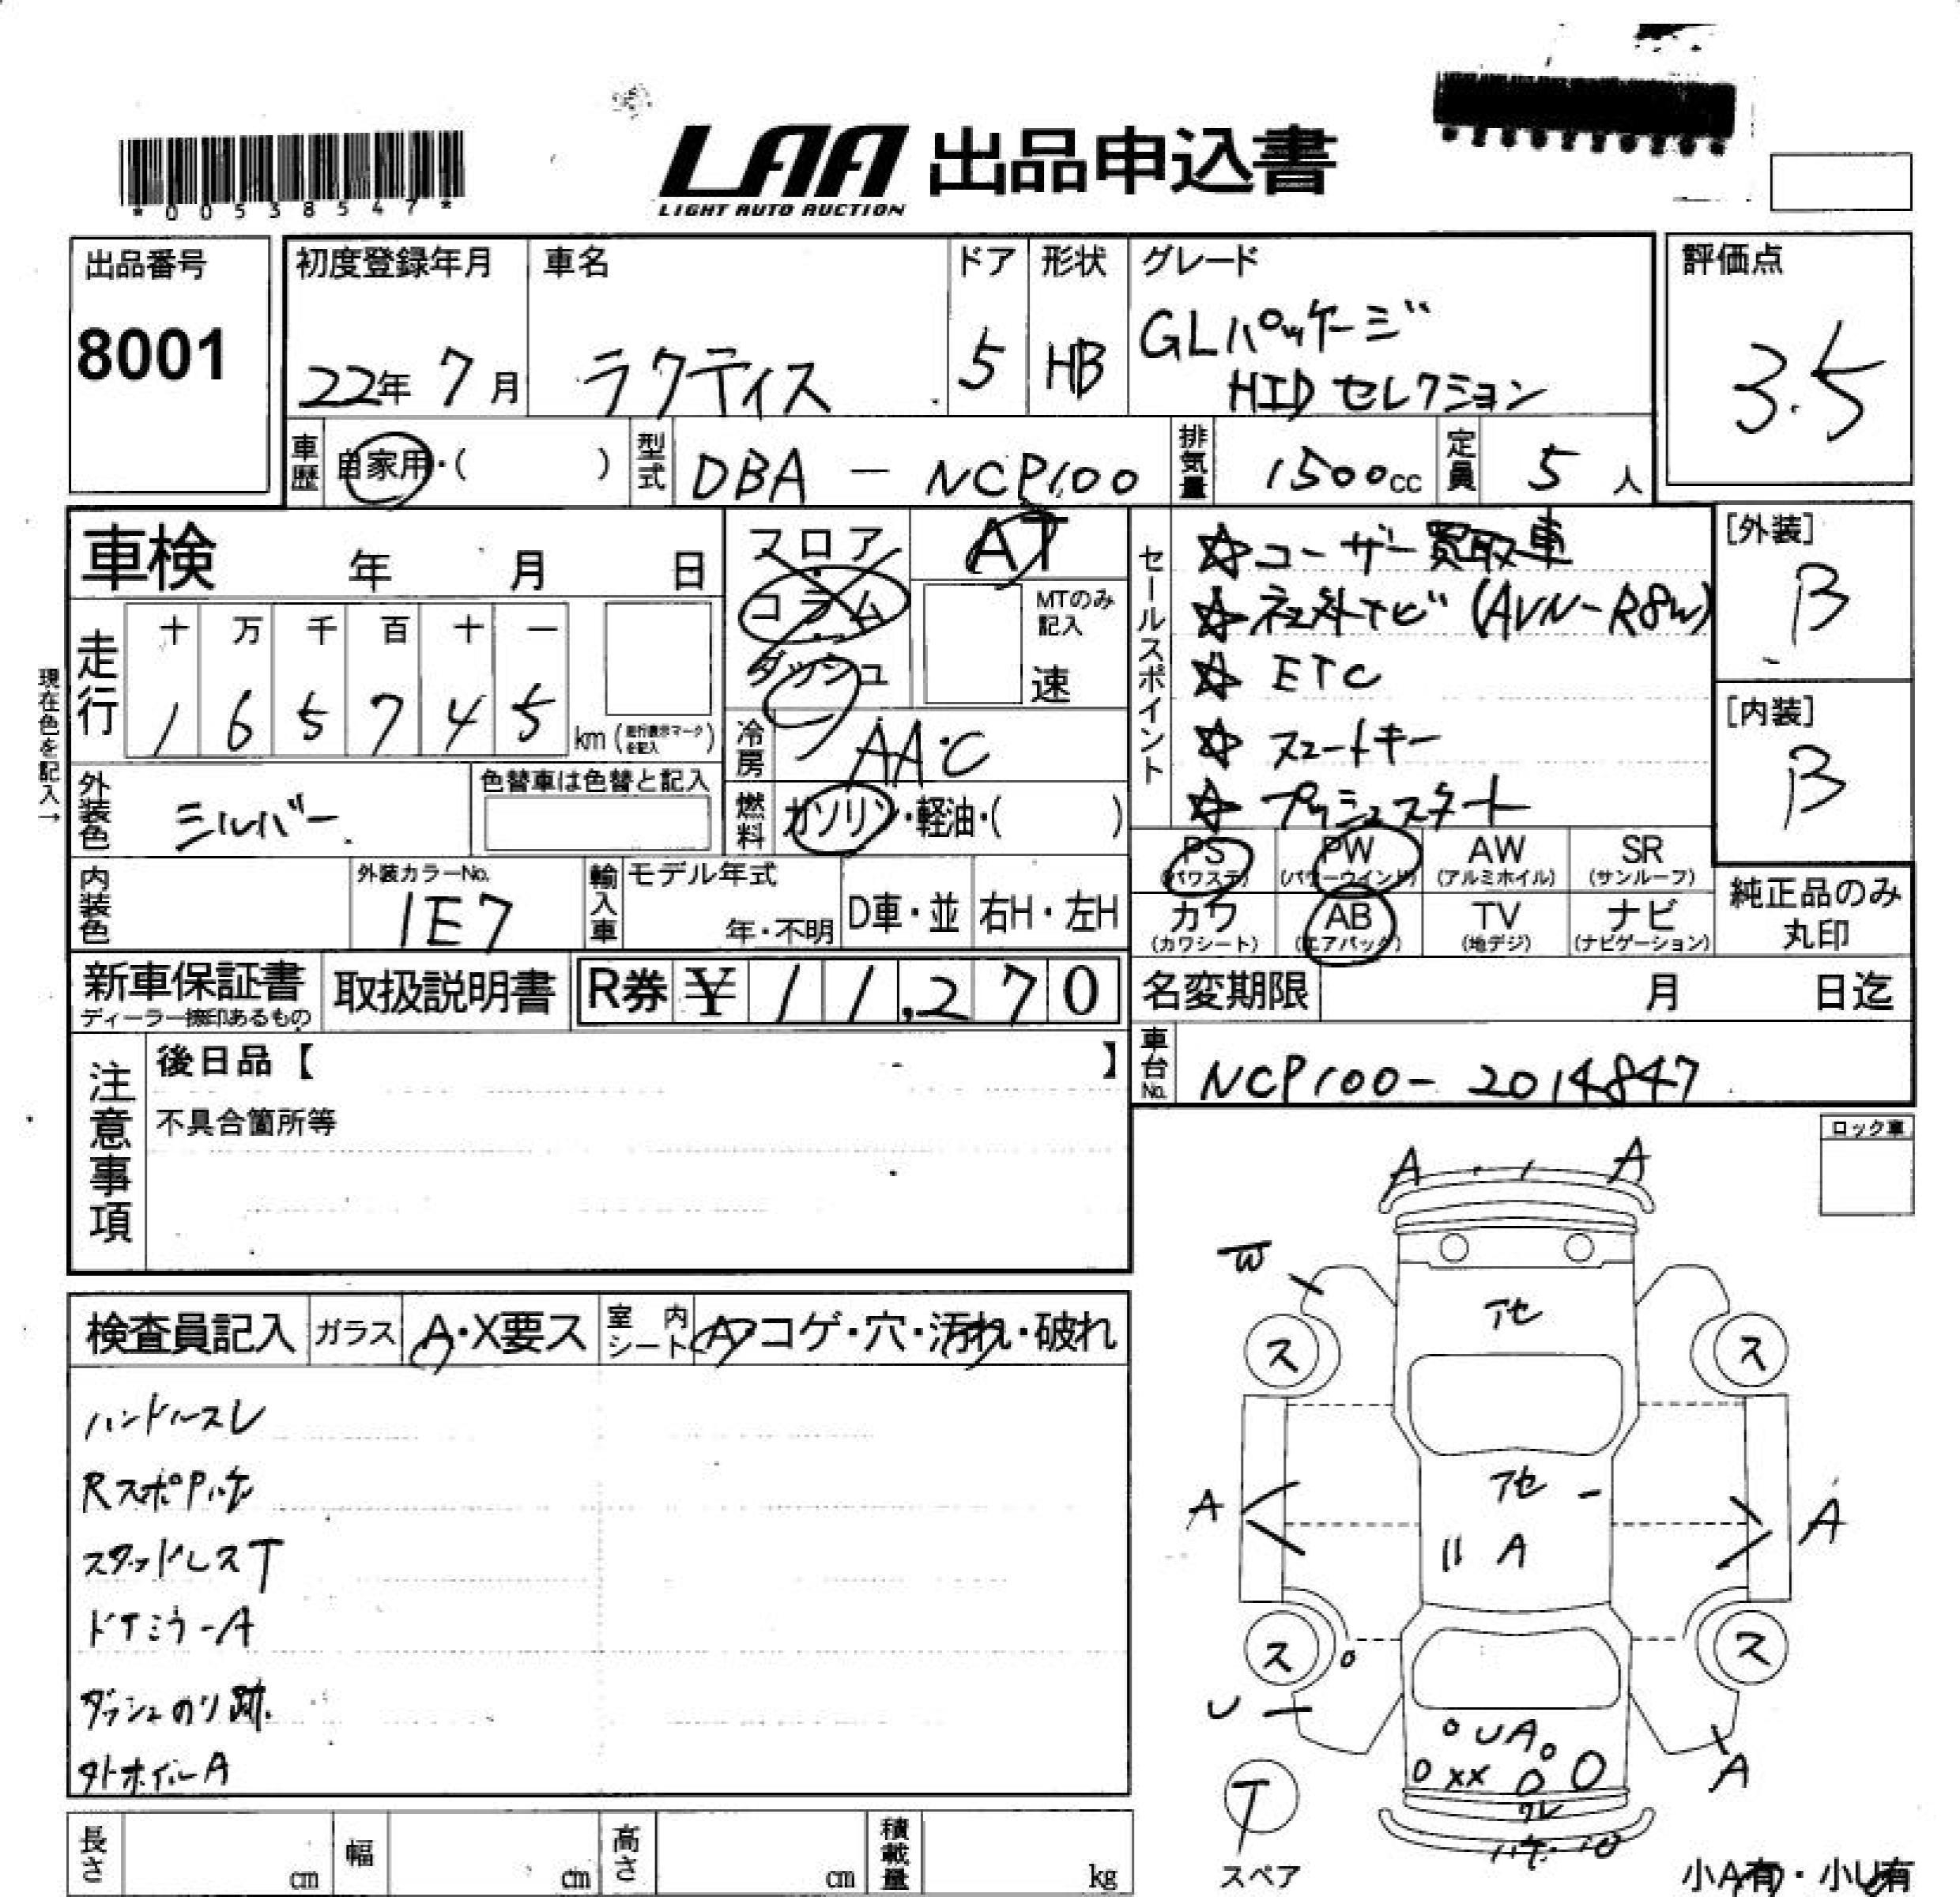 *00538547*
LAA 出品申込書
LIGHT AUTO AUCTION
出品番号
8001
初度登録年月
22年 7月
車名
ラクティス
ドア
5
形状
HB
グレード
GLパッケージ
HIDセレクション
評価点
3.5
車歴
自家用・( )
型式
DBA - NCP100
排気量
1500cc
定員
5人
車検 年 月 日
フロア
コラム
ダッシュ
AT
MTのみ
記入
速
現在色を記入→
走行
十 万 千 百 十 一
1 6 5 7 4 5
km (走行表示マークを記入)
冷房
AAC
外装色
シルバー
色替車は色替と記入
燃料
ガソリン・軽油・( )
内装色
外装カラーNo.
1E7
輸入車
モデル年式
年・不明
D車・並
右H・左H
セールスポイント
☆ユーザー買取車
☆社外ナビ(AVN-R8W)
☆ETC
☆スマートキー
☆プッシュスタート
[外装]
B
[内装]
B
PS
(パワステ)
PW
(パワーウインド)
AW
(アルミホイル)
SR
(サンルーフ)
カワ
(カワシート)
AB
(エアバッグ)
TV
(地デジ)
ナビ
(ナビゲーション)
純正品のみ
丸印
新車保証書
ディーラー捺印あるもの
取扱説明書
R券 ¥ 11,270
名変期限 月 日迄
注意事項
後日品【 】
不具合箇所等
車台No.
NCP100-2014847
ロック車
検査員記入
ガラス
A・X要ス
室内シート
A・コゲ・穴・汚れ・破れ
ハンドルスレ
スタッドレスT
ドアミラーA
ダッシュのり跡
A A
W
アセ
ス ス
アセ
A A
A
ス ス
U
UA
XX
A
T
スペア
小A有・小U有
長さ cm
幅 cm
高さ cm
積載量 kg